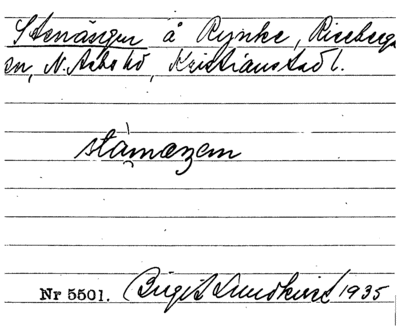 Stenängen å Rynke, Riseberga
sn, N. Åsbo hd, Kristianstad l.
stȧmæŋem
Nr 5501. Birgit Lundkvist 1935